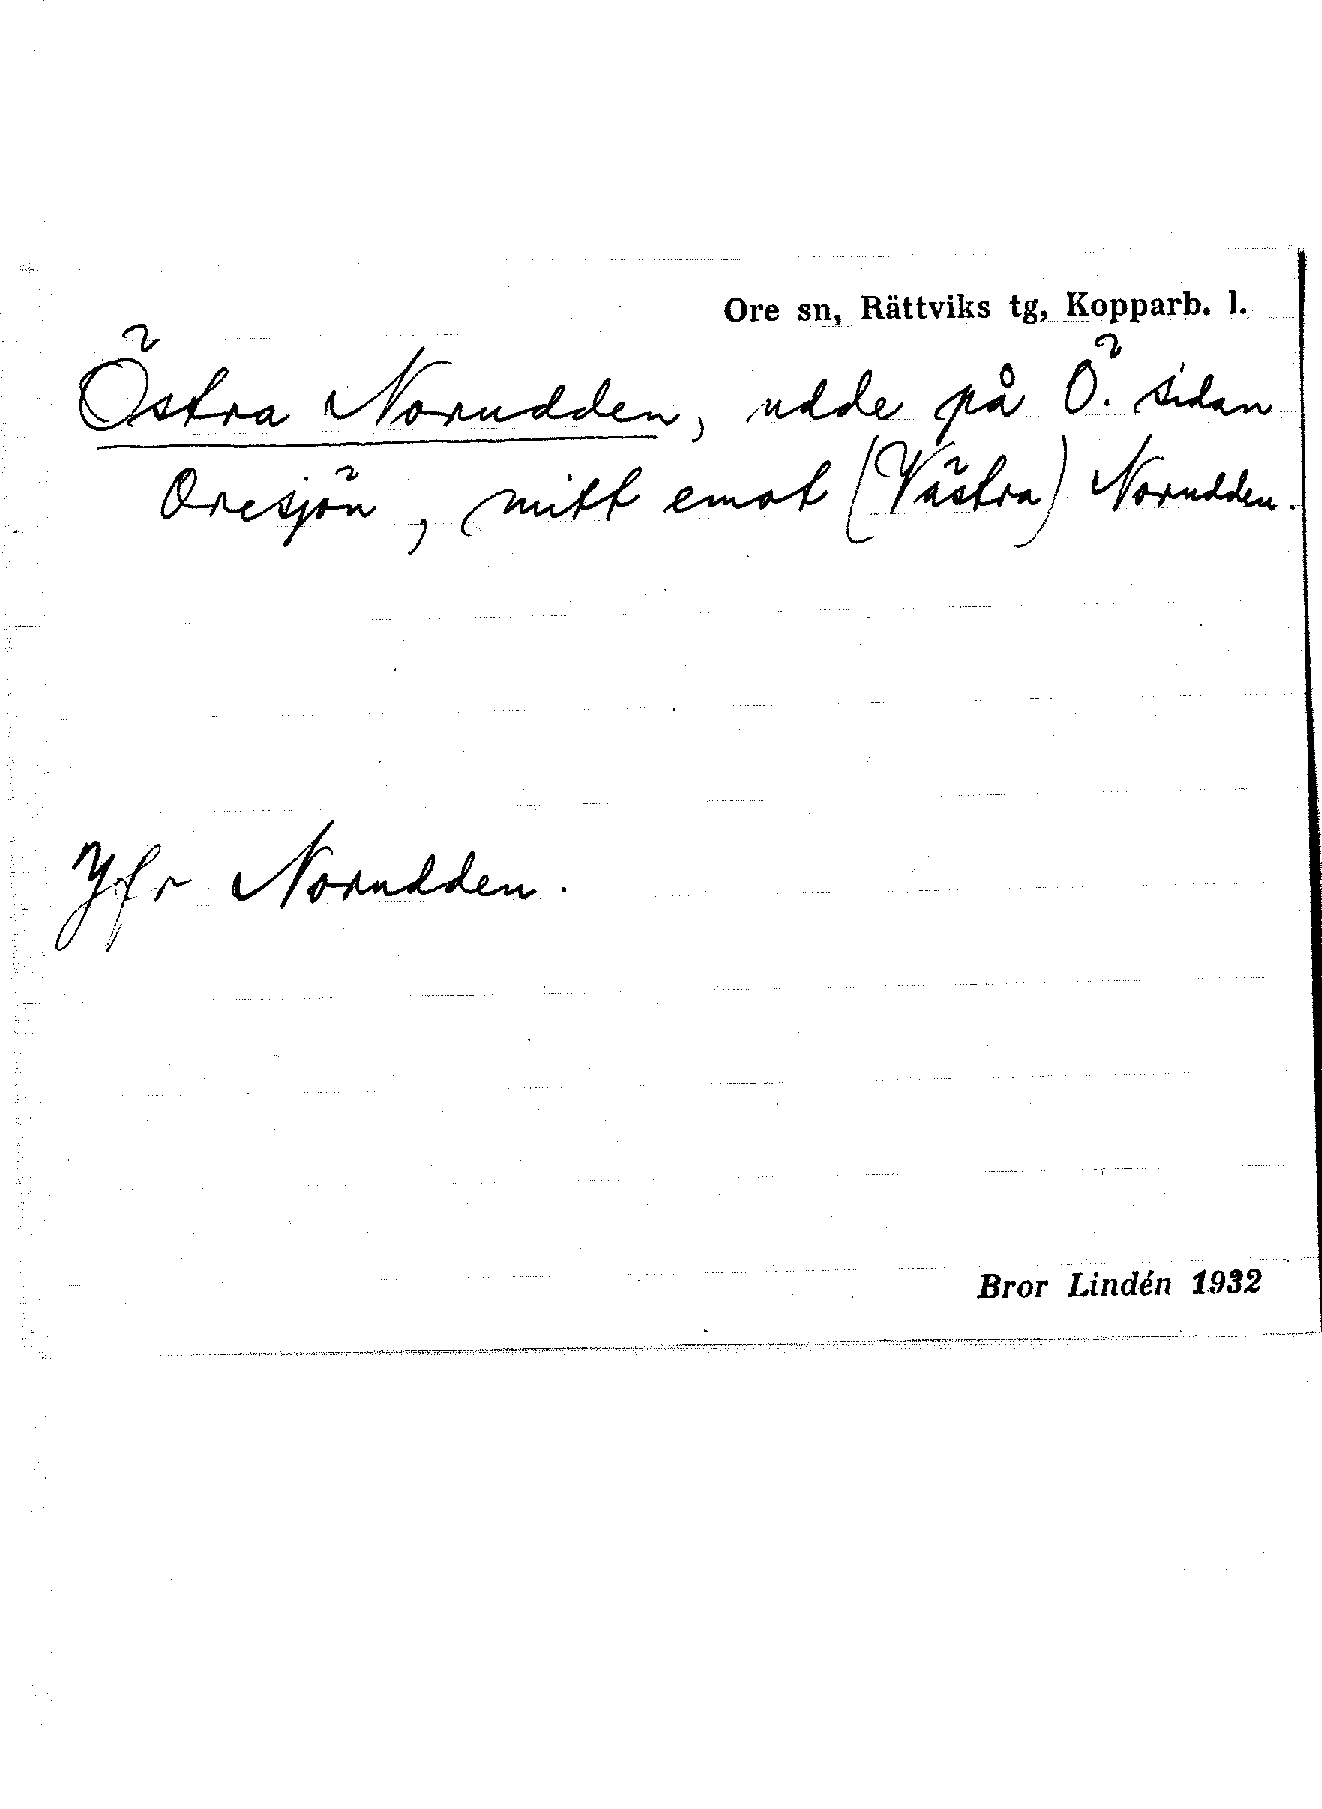 Ore sn, Rättviks tg, Kopparb. l.
Östra Norudden, udde på Ö. sidan
Oresjön, mitt emot (Västra) Norudden.
Jfr Norudden.
Bror Lindén 1932